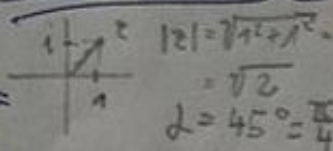 1 z |z| = √1²+1² =
1 = √2
α = 45° = π/4